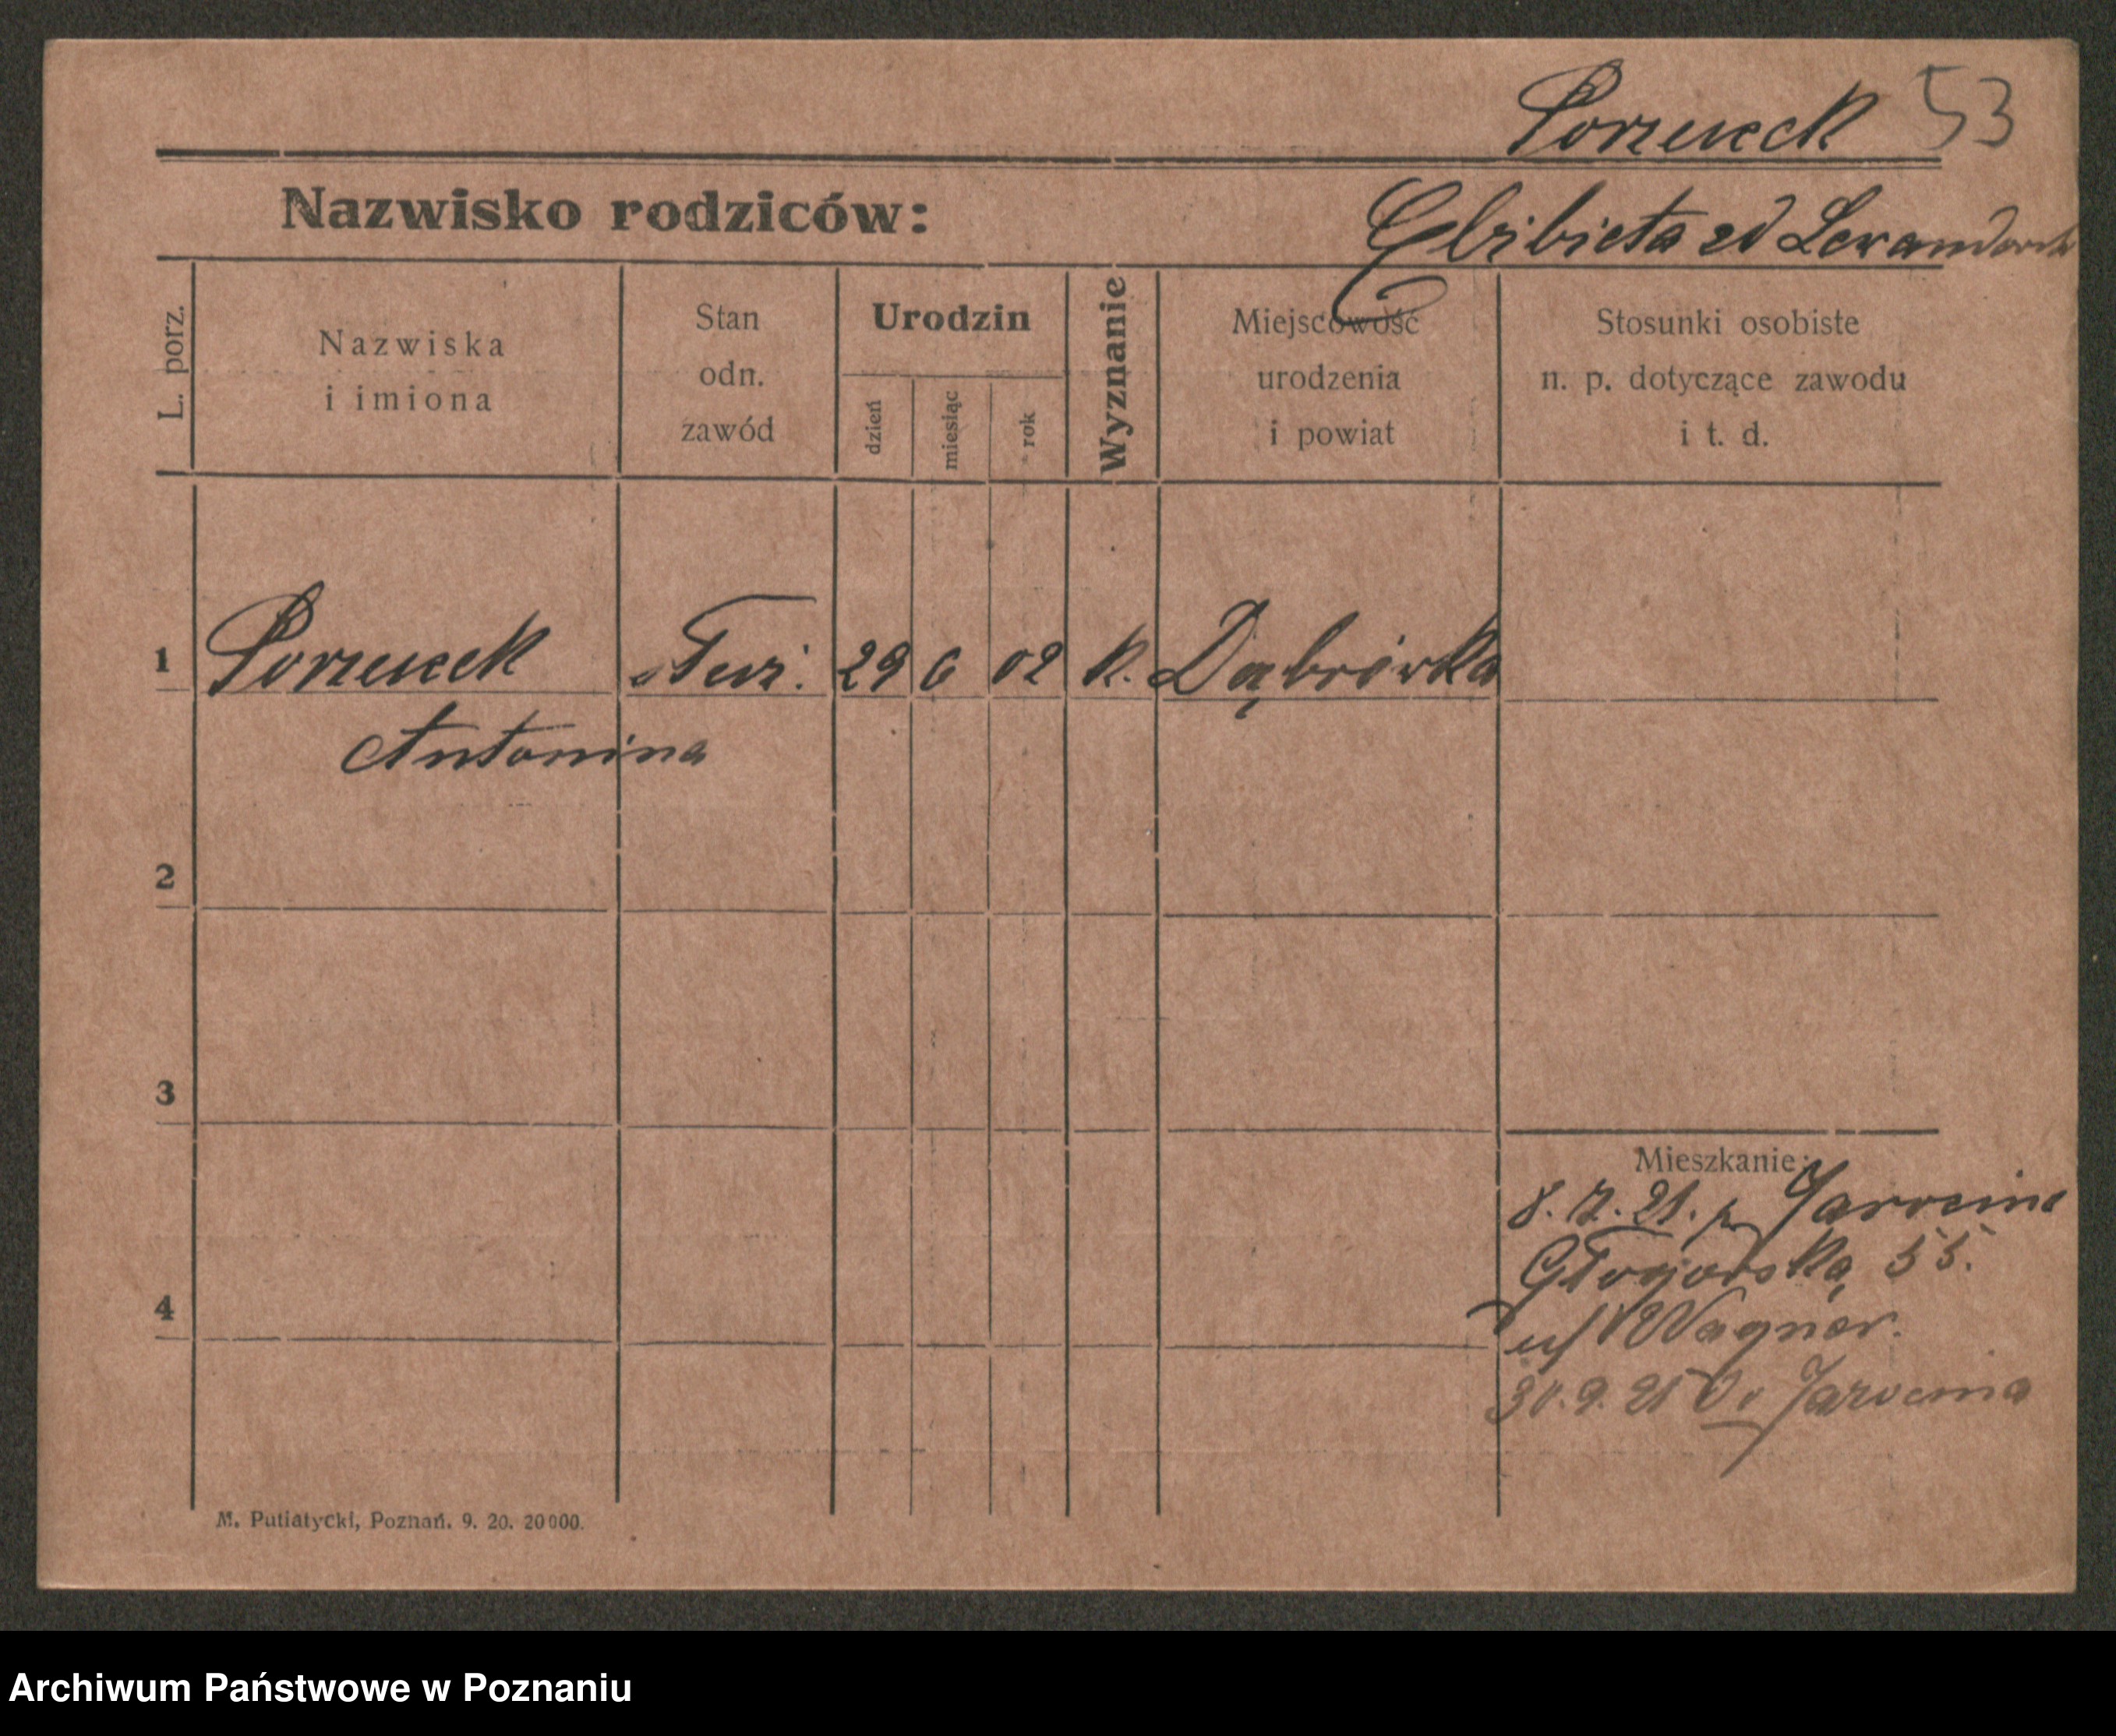 53
Nazwisko rodziców:
Elżbieta zd
L. porz.
Nazwiska
i imiona
Stan
odn.
zawód
Urodzin
dzień
miesiąc
rok
Wyznanie
Miejscowość
urodzenia
i powiat
Stosunki osobiste
n. p. dotyczące zawodu
i t. d.
1
29 6 02 k. Dąbrówka
Antonina
2
3
4
Mieszkanie:
8. 7. 21. Jarocina
Głogowska 55.
Wagner.
Jarocina
M. Putiatycki, Poznań. 9. 20. 20000.
Archiwum Państwowe w Poznaniu